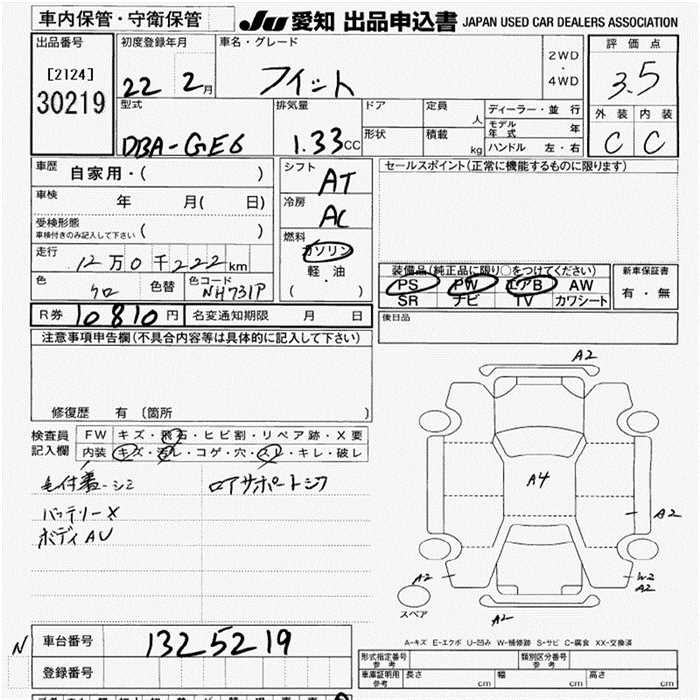 車内保管・守衛保管
JU 愛知 出品申込書 JAPAN USED CAR DEALERS ASSOCIATION
出品番号
[2124]
30219
初度登録年月
22 2月
車名・グレード
フィット
2WD
・
4WD
評価点
3.5
外装 内装
C C
型式
DBA-GE6
排気量
1.33cc
ドア
形状
定員 人
積載 kg
ディーラー・並行
モデル年式 年
ハンドル 左・右
車歴 自家用・( )
車検 年 月( 日)
受検形態
車検付きのみ記入して下さい ( )
走行 12万0千222km
色 クロ 色替 色コード NH731P
シフト AT
冷房 AC
燃料
ガソリン
軽・油
( )
セールスポイント(正常に機能するものに限ります)
装備品(純正品に限り○をつけてください)
PS PW エアB AW
SR ナビ TV カワシート
新車保証書
有・無
R券 10810円 名変通知期限 月 日
後日品
注意事項申告欄(不具合内容等は具体的に記入して下さい)
修復歴 有 [箇所 ]
検査員記入欄
FW キズ・飛石・ヒビ割・リペア跡・X要
内装 キズ・汚レ・コゲ・穴・スレ・キレ・破レ
バッテリーX
ボディAU
ロアサポートシワ
A2
A4
A2
A2
W2
A2
A2
スペア
A-キズ E-エクボ U-凹み W-補修跡 S-サビ C-腐食 XX-交換済
N 車台番号 1325219
登録番号
形式指定番号 参考
類別区分番号 参考
車庫証明用 参考 長さ cm 幅 cm 高さ cm